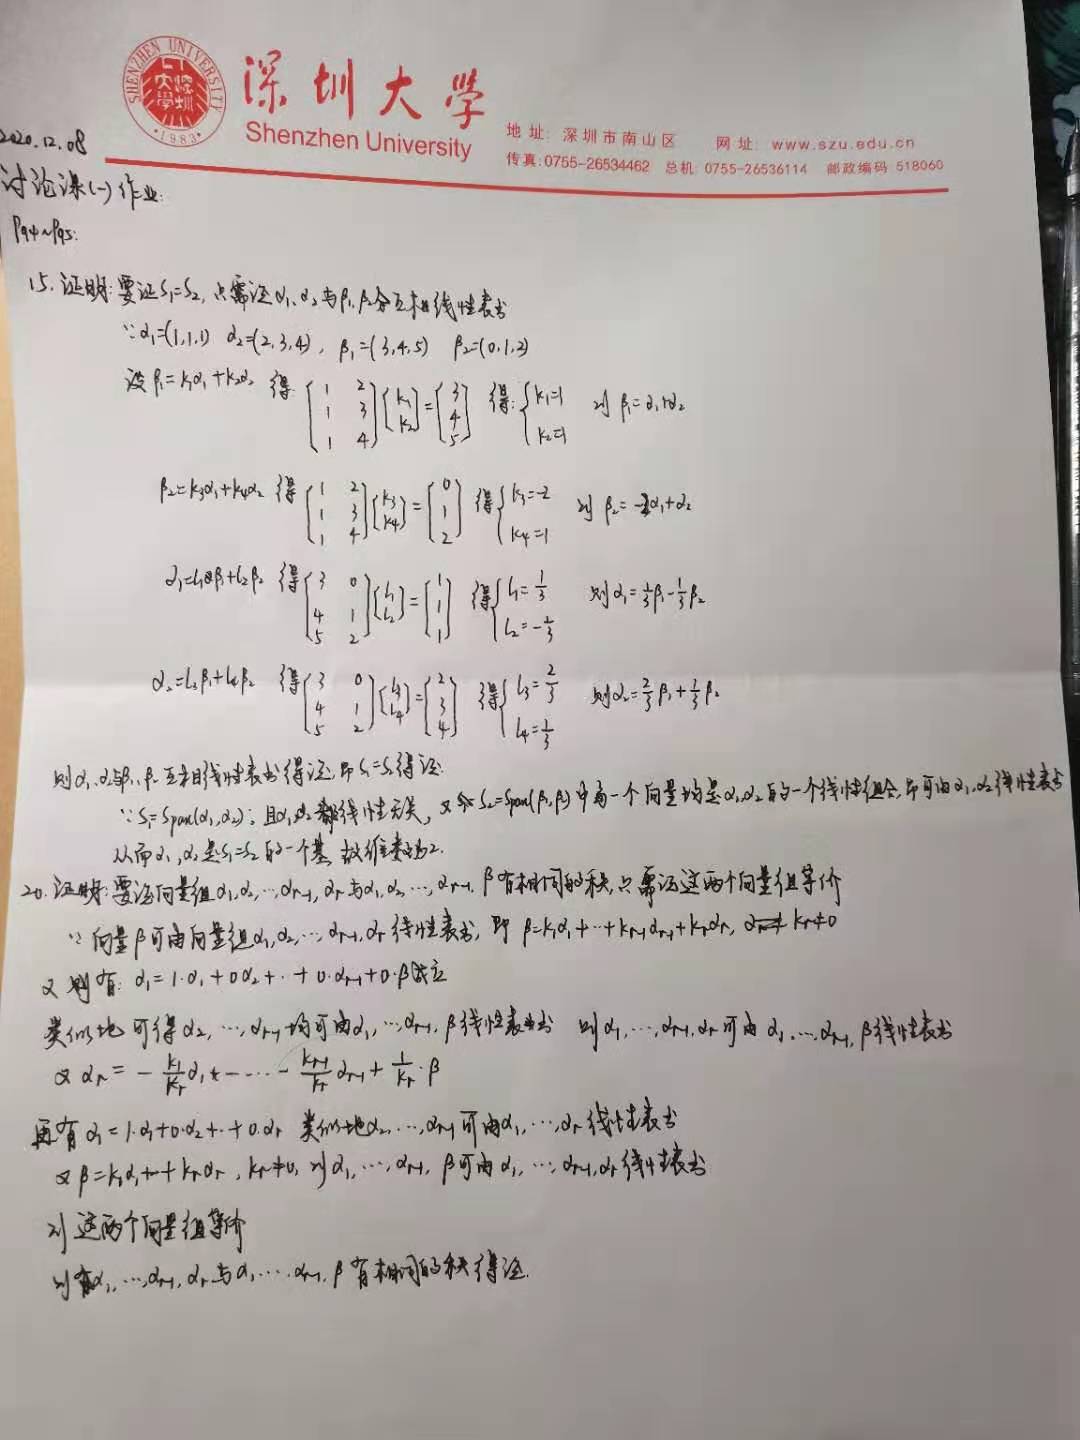 SHENZHEN UNIVERSITY
深圳大学
·1983·
深圳大学
Shenzhen University
地 址: 深圳市南山区 网 址: www.szu.edu.cn
传真:0755-26534462 总机: 0755-26536114 邮政编码 518060
2020.12.08
讨论课(一)作业:
P94~P95:
15.证明:要证S₁=S₂,只需证α₁、α₂与β₁、β₂互相线性表出
∵α₁=(1,1,1) α₂=(2,3,4), β₁=(3,4,5) β₂=(0,1,2)
设β₁=k₁α₁+k₂α₂ 得: [1 2; 1 3; 1 4][k₁; k₂]=[3; 4; 5] 得:{k₁=1 k₂=1 则β₁=α₁+α₂
β₂=k₃α₁+k₄α₂ 得 [1 2; 1 3; 1 4][k₃; k₄]=[0; 1; 2] 得{k₃=-2 k₄=1 则β₂=-2α₁+α₂
α₁=l₁β₁+l₂β₂ 得[3 0; 4 1; 5 2][l₁; l₂]=[1; 1; 1] 得{l₁=1/3 l₂=-1/3 则α₁=1/3β₁-1/3β₂
α₂=l₃β₁+l₄β₂ 得[3 0; 4 1; 5 2][l₃; l₄]=[2; 3; 4] 得{l₃=2/3 l₄=1/3 则α₂=2/3β₁+1/3β₂
则α₁、α₂与β₁、β₂互相线性表出得证,即S₁=S₂得证.
∵S₁=Span(α₁,α₂);且α₁,α₂线性无关,又S₂=Span(β₁,β₂)中每一个向量均是α₁,α₂的一个线性组合,即可由α₁、α₂线性表出
从而α₁,α₂是S₁=S₂的一个基,故维数为2.
20.证明:要证向量组α₁,α₂,…,αr-1,αr与α₁,α₂,…,αr-1,β有相同的秩,只需证这两个向量组等价
∵向量β可由向量组α₁,α₂,…,αr-1,αr线性表出,即β=k₁α₁+…+kr-1αr-1+krαr, kr≠0
又则有:α₁=1·α₁+0α₂+…+0·αr-1+0·β成立
类似地可得α₂,…,αr-1均可由α₁,…,αr-1,β线性表出 则α₁,…,αr-1,αr可由α₁,…,αr-1,β线性表出
又αr=-k₁/krα₁-…-kr-1/krαr-1+1/kr·β
再有α₁=1·α₁+0·α₂+…+0·αr 类似地α₂,…,αr-1可由α₁,…,αr线性表出
又β=k₁α₁+…+krαr,kr≠0,则α₁,…,αr-1,β可由α₁,…,αr-1,αr线性表出
则这两个向量组等价
则α₁,…,αr-1,αr与α₁,…,αr-1,β有相同的秩得证.